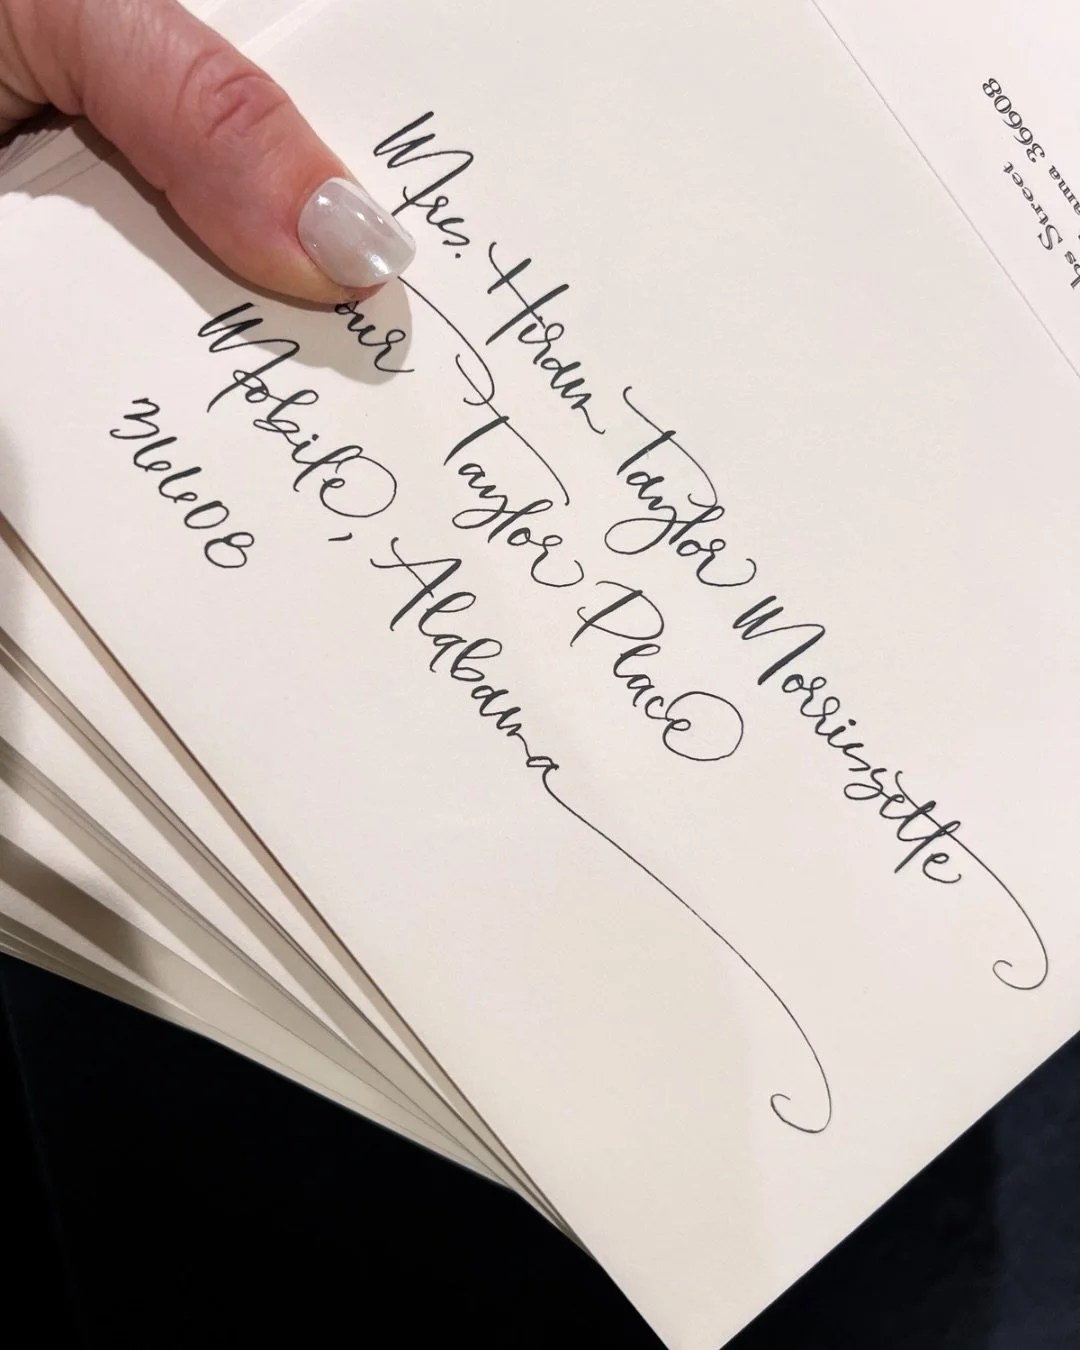 Mrs. Hirden Taylor Morrissette
our Taylor Place
Mobile, Alabama
36608
bs Street
ama 36608